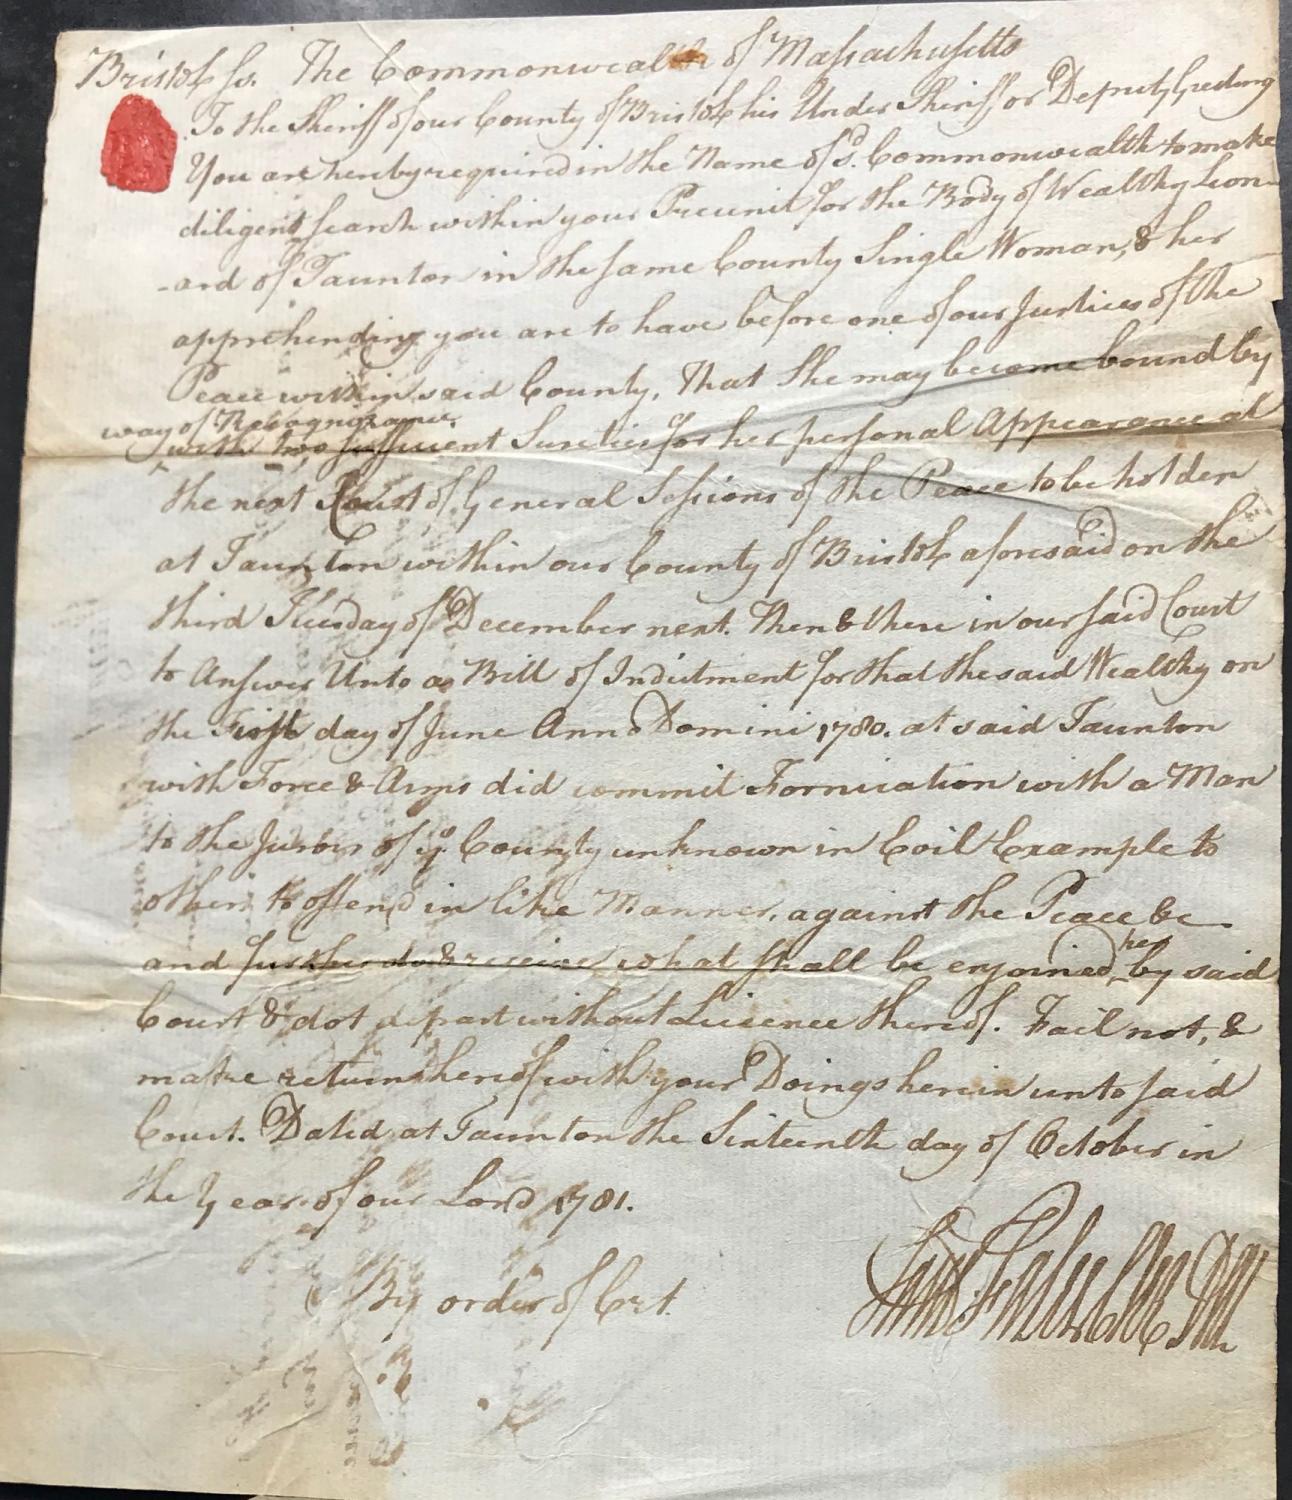 Bristol ss. The Commonwealth of Massachusetts
To the Sheriff of our County of Bristol his Under Sheriff or Deputy Greeting
You are hereby required in the Name of sd. Commonwealth to make
diligent search within your Precinct for the Body of Wealthy Leon-
-ard of Taunton in the same County Single Woman, & her
apprehending you are to have before one of our Justices of the
Peace within said County, That She may become bound by
way of Recognizance
with two sufficient Sureties for her personal Appearance at
the next Court of General Sessions of the Peace to be holden
at Taunton within our County of Bristol aforesaid on the
third Tuesday of December next. Then & there in our said Court
to Answer Unto a Bill of Indictment for that the said Wealthy on
the First day of June Anno Domini 1780. at said Taunton
with Force & Arms did commit Fornication with a Man
to the Jurors of ye. County unknown in Evil Example to
others to offend in like Manner, against the Peace &c
and further do & receive what shall be enjoined her by said
Court & dot depart without Licence thereof. Fail not, &
make return hereof with your Doings herein unto said
Court. Dated at Taunton the Sixteenth day of October in
the Year of our Lord 1781.
By order of Crt.